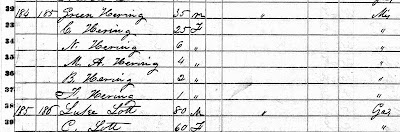 29 184 185 Green Hering 35 m " Mis
32 C. Hering 25 F "
33 N. Hering 6 " "
34 M. A. Hering 4 " "
35 B. Hering 2 " "
36 F. Hering 1 " "
185 186 Luke Lott 80 M " Ga
39 C. Lott 60 F "